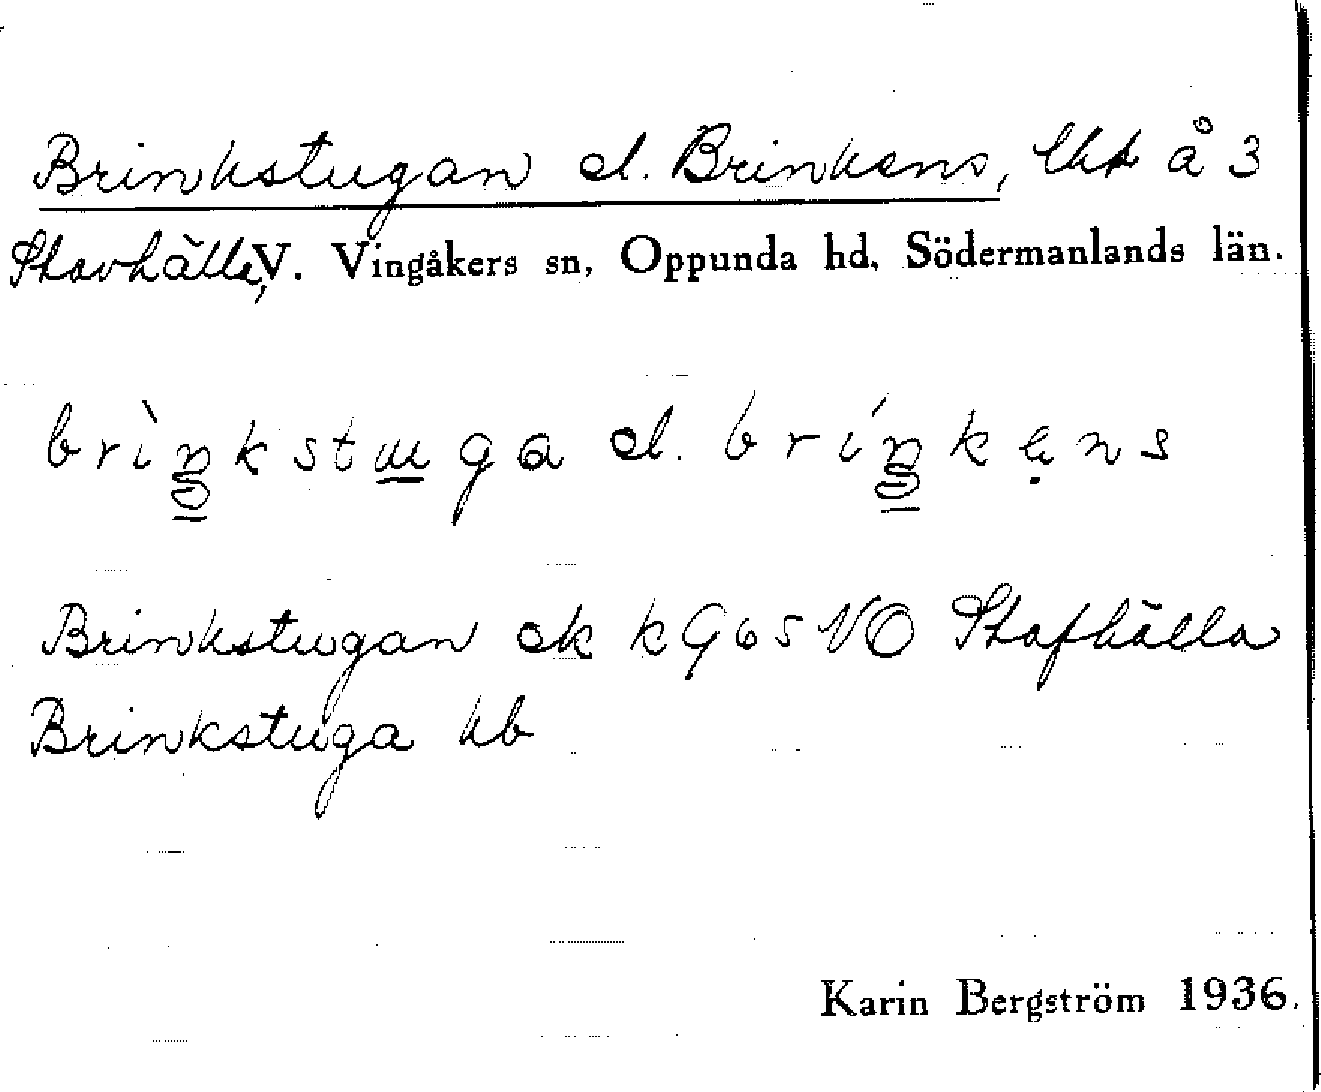 Brinkstugan el. Brinkens, lht å 3
Skavhälla, V. Vingåkers sn, Oppunda hd, Södermanlands län.
brìŋkstuga el. bríŋkens
Brinkstugan ek k G65 NO Skafhälla
Brinkstuga kb
Karin Bergström 1936.